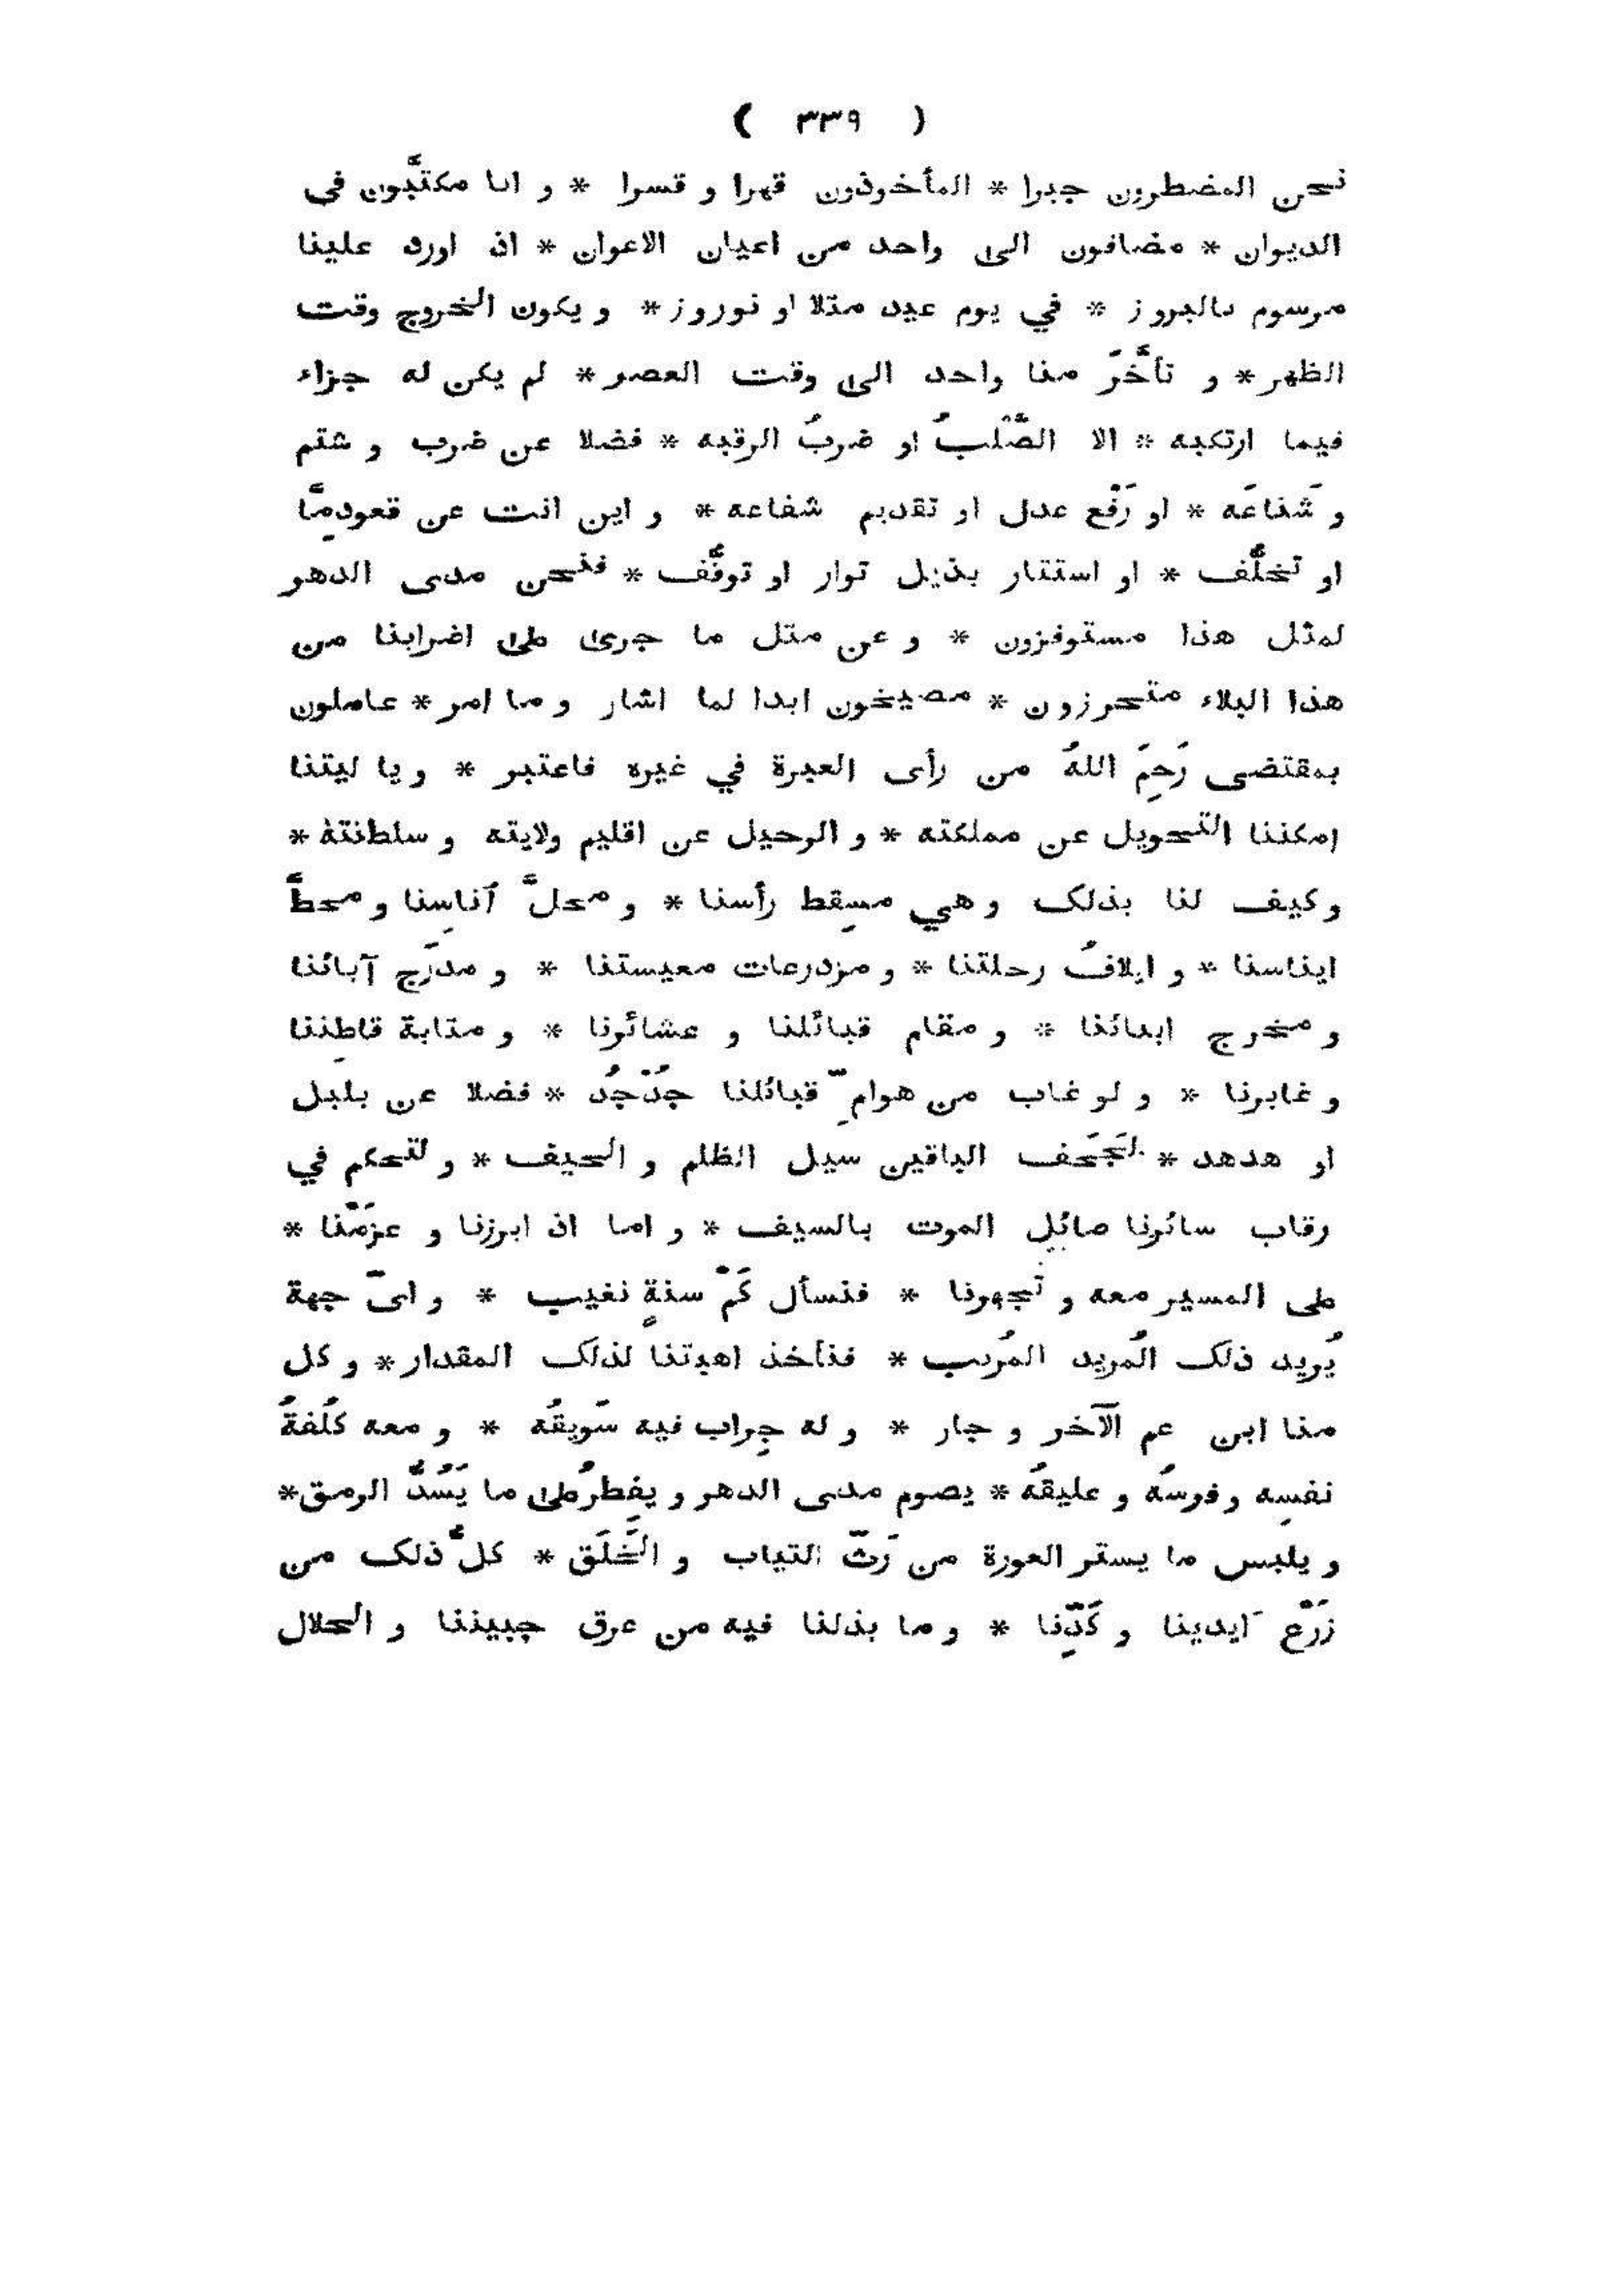 ( ٣٣٩ )
نحن المضطرون جبرا * المأخوذون قهرا و قسرا * و انا مكتَّبون في
الديوان * مضافون الى واحد من اعيان الاعوان * ان اورد علينا
مرسوم بالبروز * في يوم عيد مثلا او نوروز * و يكون الخروج وقت
الظهر * و تأخَّرَ منا واحد الى وقت العصر * لم يكن له جزاء
فيما ارتكبه * الا الصَّلْبُ او ضربُ الرقبه * فضلا عن ضرب و شتم
و شَناعَه * او رَفْع عدل او تقديم شفاعه * و اين انت عن قعودٍ مَّا
او تخلُّف * او استتار بذيل توار او توقُّف * فنحن مدى الدهر
لمثل هذا مستوفزون * و عن مثل ما جرى على اضرابنا من
هذا البلاء متحرزون * مصيخون ابدا لما اشار و ما امر * عاملون
بمقتضى رَحِمَ اللهُ من رأى العبرة في غيره فاعتبر * و يا ليتنا
امكننا التحويل عن مملكته * و الرحيل عن اقليم ولايته و سلطنته *
وكيف لنا بذلك و هي مسقِط رأسنا * و محلُّ آناسِنا و محطُّ
ايناسنا * و ايلافُ رحلتنا * و مزدرعات معيستنا * و مدرَج آبائنا
و مخرج ابنائنا * و مقام قبائلنا و عشائرنا * و مثابة قاطِننا
و غابرنا * و لو غاب من هوامِّ قبائلنا جُدْجُد * فضلا عن بلبل
او هدهد * لَتَجَحف الباقين سيل الظلم و الحيف * و لتحكم في
رقاب سائرنا صائل الموت بالسيف * و اما ان ابرزنا و عزَمْنا *
على المسير معه و تجهزنا * فنسأل كَمْ سنةٍ نغيب * و ايّ جهة
يُريد ذلك المُريد المُريب * فنأخذ اهبتنا لذلك المقدار * و كل
منا ابن عم الآخر و جار * و له جِراب فيه سَويقُه * و معه كُلفةُ
نفسِه و فرسُه و عليقُه * يصوم مدى الدهر و يفطِرُ على ما يَسُدُّ الرمق *
و يلبس ما يستر العورة من رَثّ الثياب و الخَلَق * كلُّ ذلك من
زَرْع اَيدينا و كَدِّنا * و ما بذلنا فيه من عرق جبيننا و الحلال